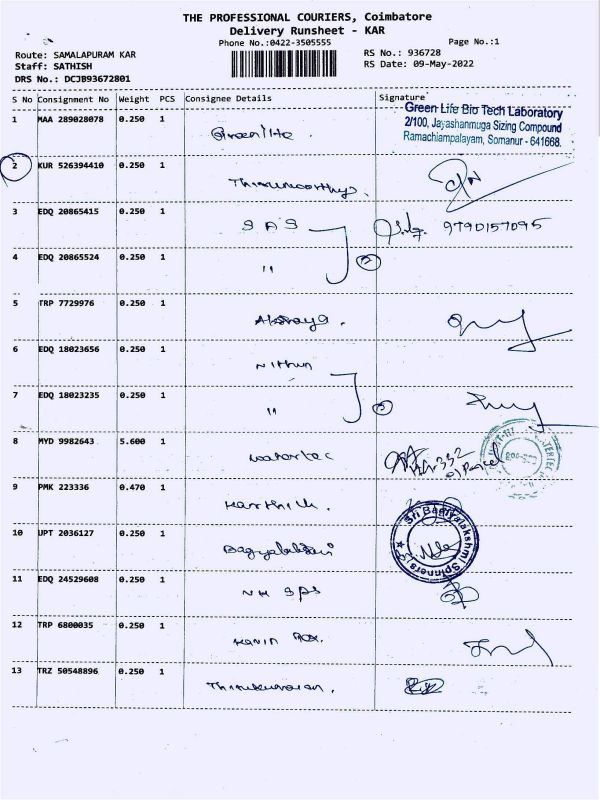 THE PROFESSIONAL COURIERS, Coimbatore
Delivery Runsheet - KAR
Phone No.:0422-3505555 Page No.:1
Route: SAMALAPURAM KAR RS No.: 936728
Staff: SATHISH RS Date: 09-May-2022
DRS No.: DCJB93672801
S No Consignment No Weight PCS Consignee Details Signature
Green Life Bio Tech Laboratory
2/100, Jayashanmuga Sizing Compound
Ramachiampalayam, Somanur - 641668.
1 MAA 289028078 0.250 1 Greenlife.
2 KUR 526394410 0.250 1 Thirumoorthy.
3 EDQ 20865415 0.250 1 SAS 9790157095
4 EDQ 20865524 0.250 1 " 2
5 TRP 7729976 0.250 1 Akshaya.
6 EDQ 18023656 0.250 1 Nithun
7 EDQ 18023235 0.250 1 "
8 MYD 9982643 5.600 1 Watertec
9 PMK 223336 0.470 1 Karthik.
10 UPT 2036127 0.250 1 Bagyalakshmi
Sri Bagiyalakshmi Spinners
11 EDQ 24529608 0.250 1 NH SPS
12 TRP 6800035 0.250 1
13 TRZ 50548896 0.250 1 Thirukumaran.